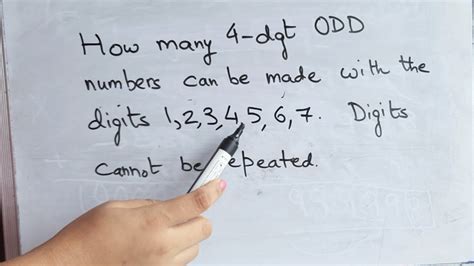 How many 4-dgt ODD
numbers can be made with the
digits 1,2,3,4,5,6,7. Digits
cannot be repeated.